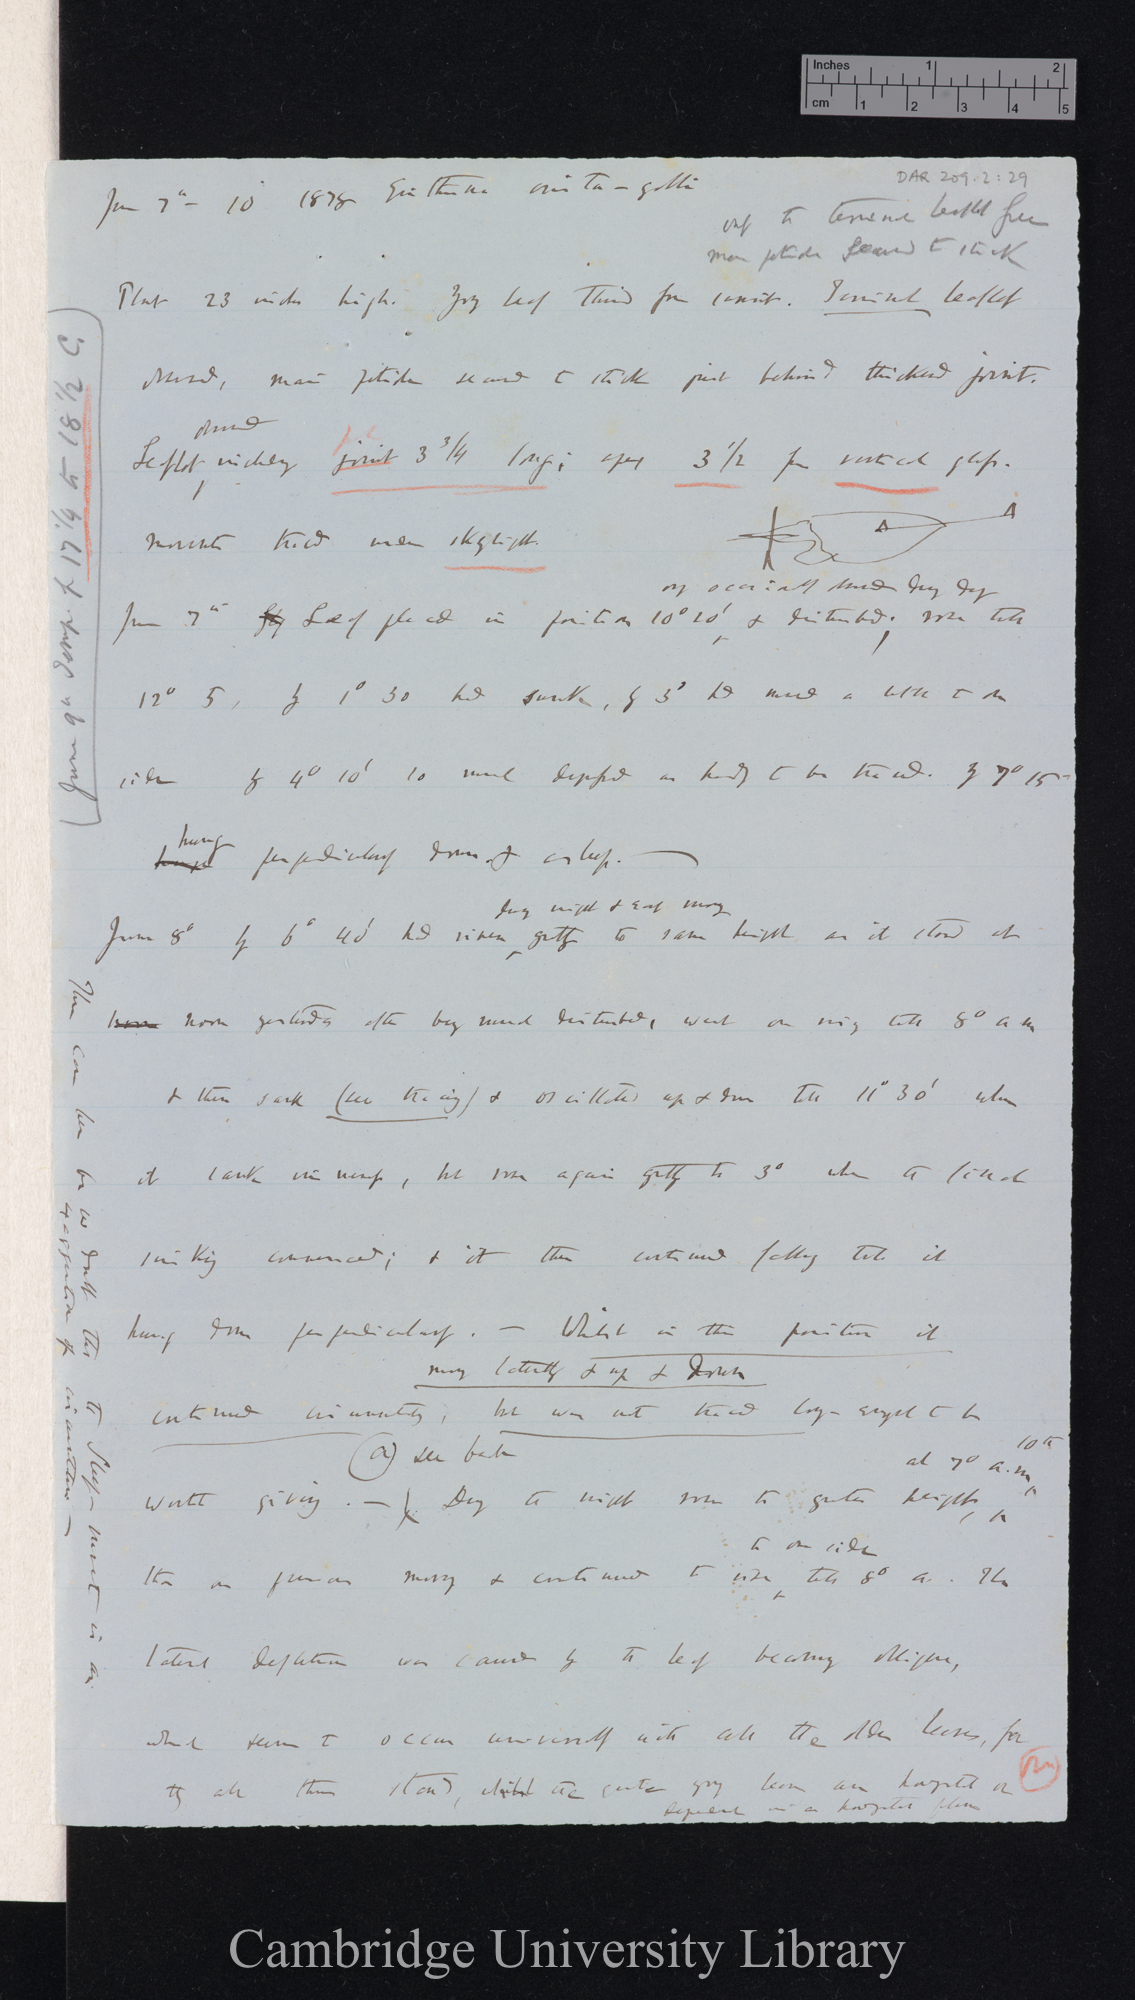 Inches 1 2
cm 1 2 3 4 5
DAR 209.2:29
June 7th – 10 1878 Erythrina crista-galli
only the terminal leaflet free
main petiole secured to stick
Plant 23 inches high. Young leaf third from summit. Terminal leaflet
observed, main petiole secured to stick just behind thickened joint.
observed
Leaflet including joint 3 3/4 long; apex 3 1/2 from vertical glass.
movements traced under skylight.
only occasionally observed during day
June 7th Leaf placed in position 10° 20' & disturbed; rose till
12° 5, by 1° 30 had sunk, by 3° had moved a little to one
side by 4° 10' so much depressed as hardly to be traced. By 7° 15
hung perpendicularly down & asleep.
during night & early morning
June 8° by 6° 40' had risen greatly to same height as it stood at
noon yesterday after being much disturbed, went on rising till 8° a m
& then sank (see tracing) & oscillated up & down till 11° 30' when
it sank , but rose again greatly to 3° when the
sinking commenced; & it then continued falling till it
hung down perpendicularly. — Whilst in this position it
moving laterally & up & down
continued circumnutating, but was not traced long enough to be
(a) see back
at 7° a.m. 10th
worth giving. — During the night rose to greater height,
than on previous morning & continued to rise till 8° a. The
to one side
lateral deflection was caused by the leaf becoming oblique,
which seems to occur universally with all the older leaves, for
they all thus stand, whilst the quite young leaves are horizontal or
dependent in a horizontal plane
June 9th Temp. 17 1/4 to 18 1/2 C.
There can here be no doubt that the Sleep – movement is an
exaggeration of circumnutation —
Cambridge University Library